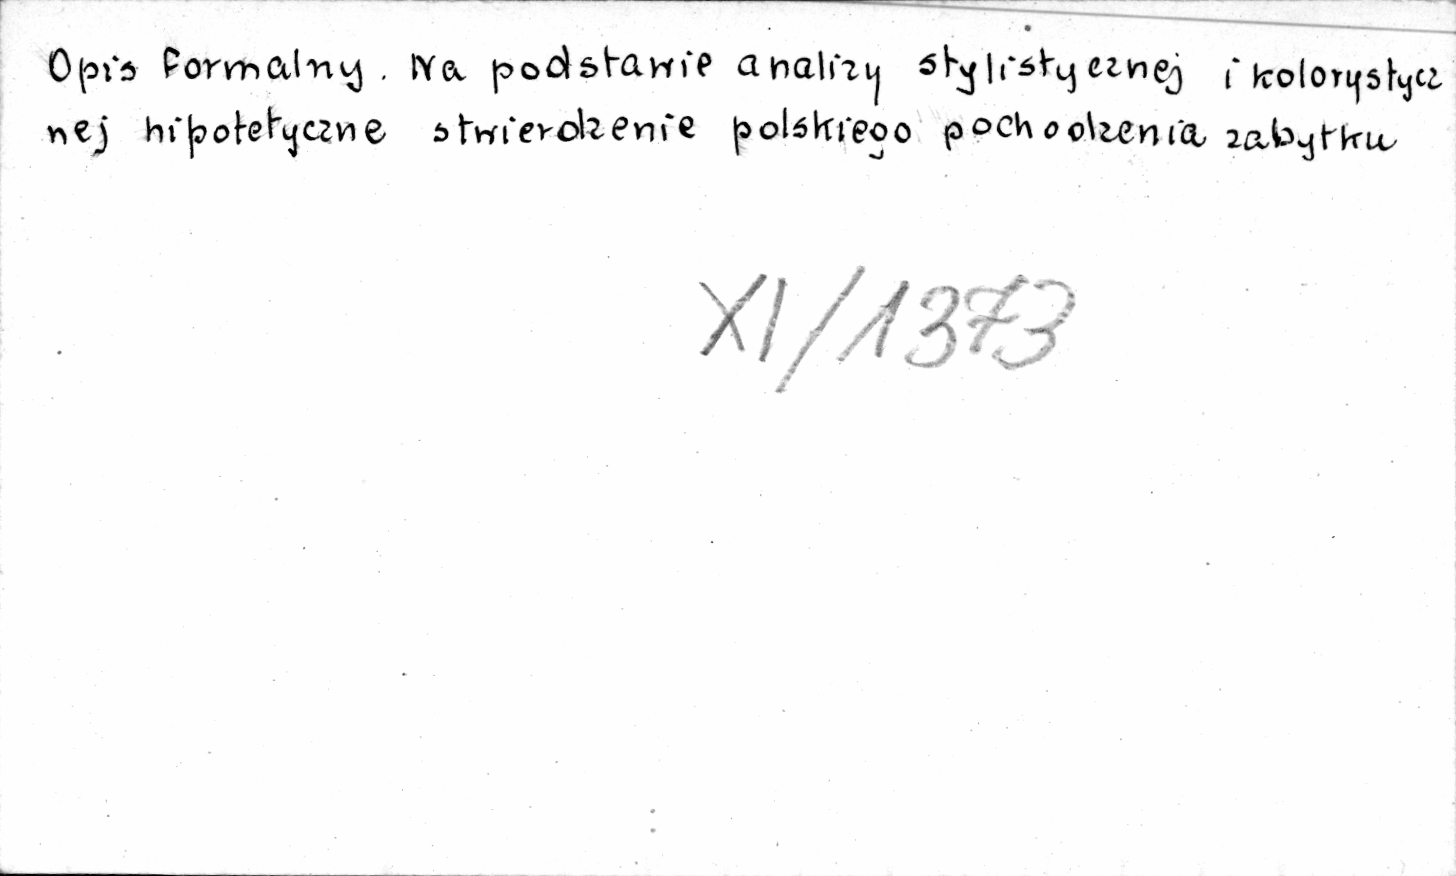 Opis formalny. Na podstawie analizy stylistycznej i kolorystycz
nej hipotetyczne stwierdzenie polskiego pochodzenia zabytku
XI/1373